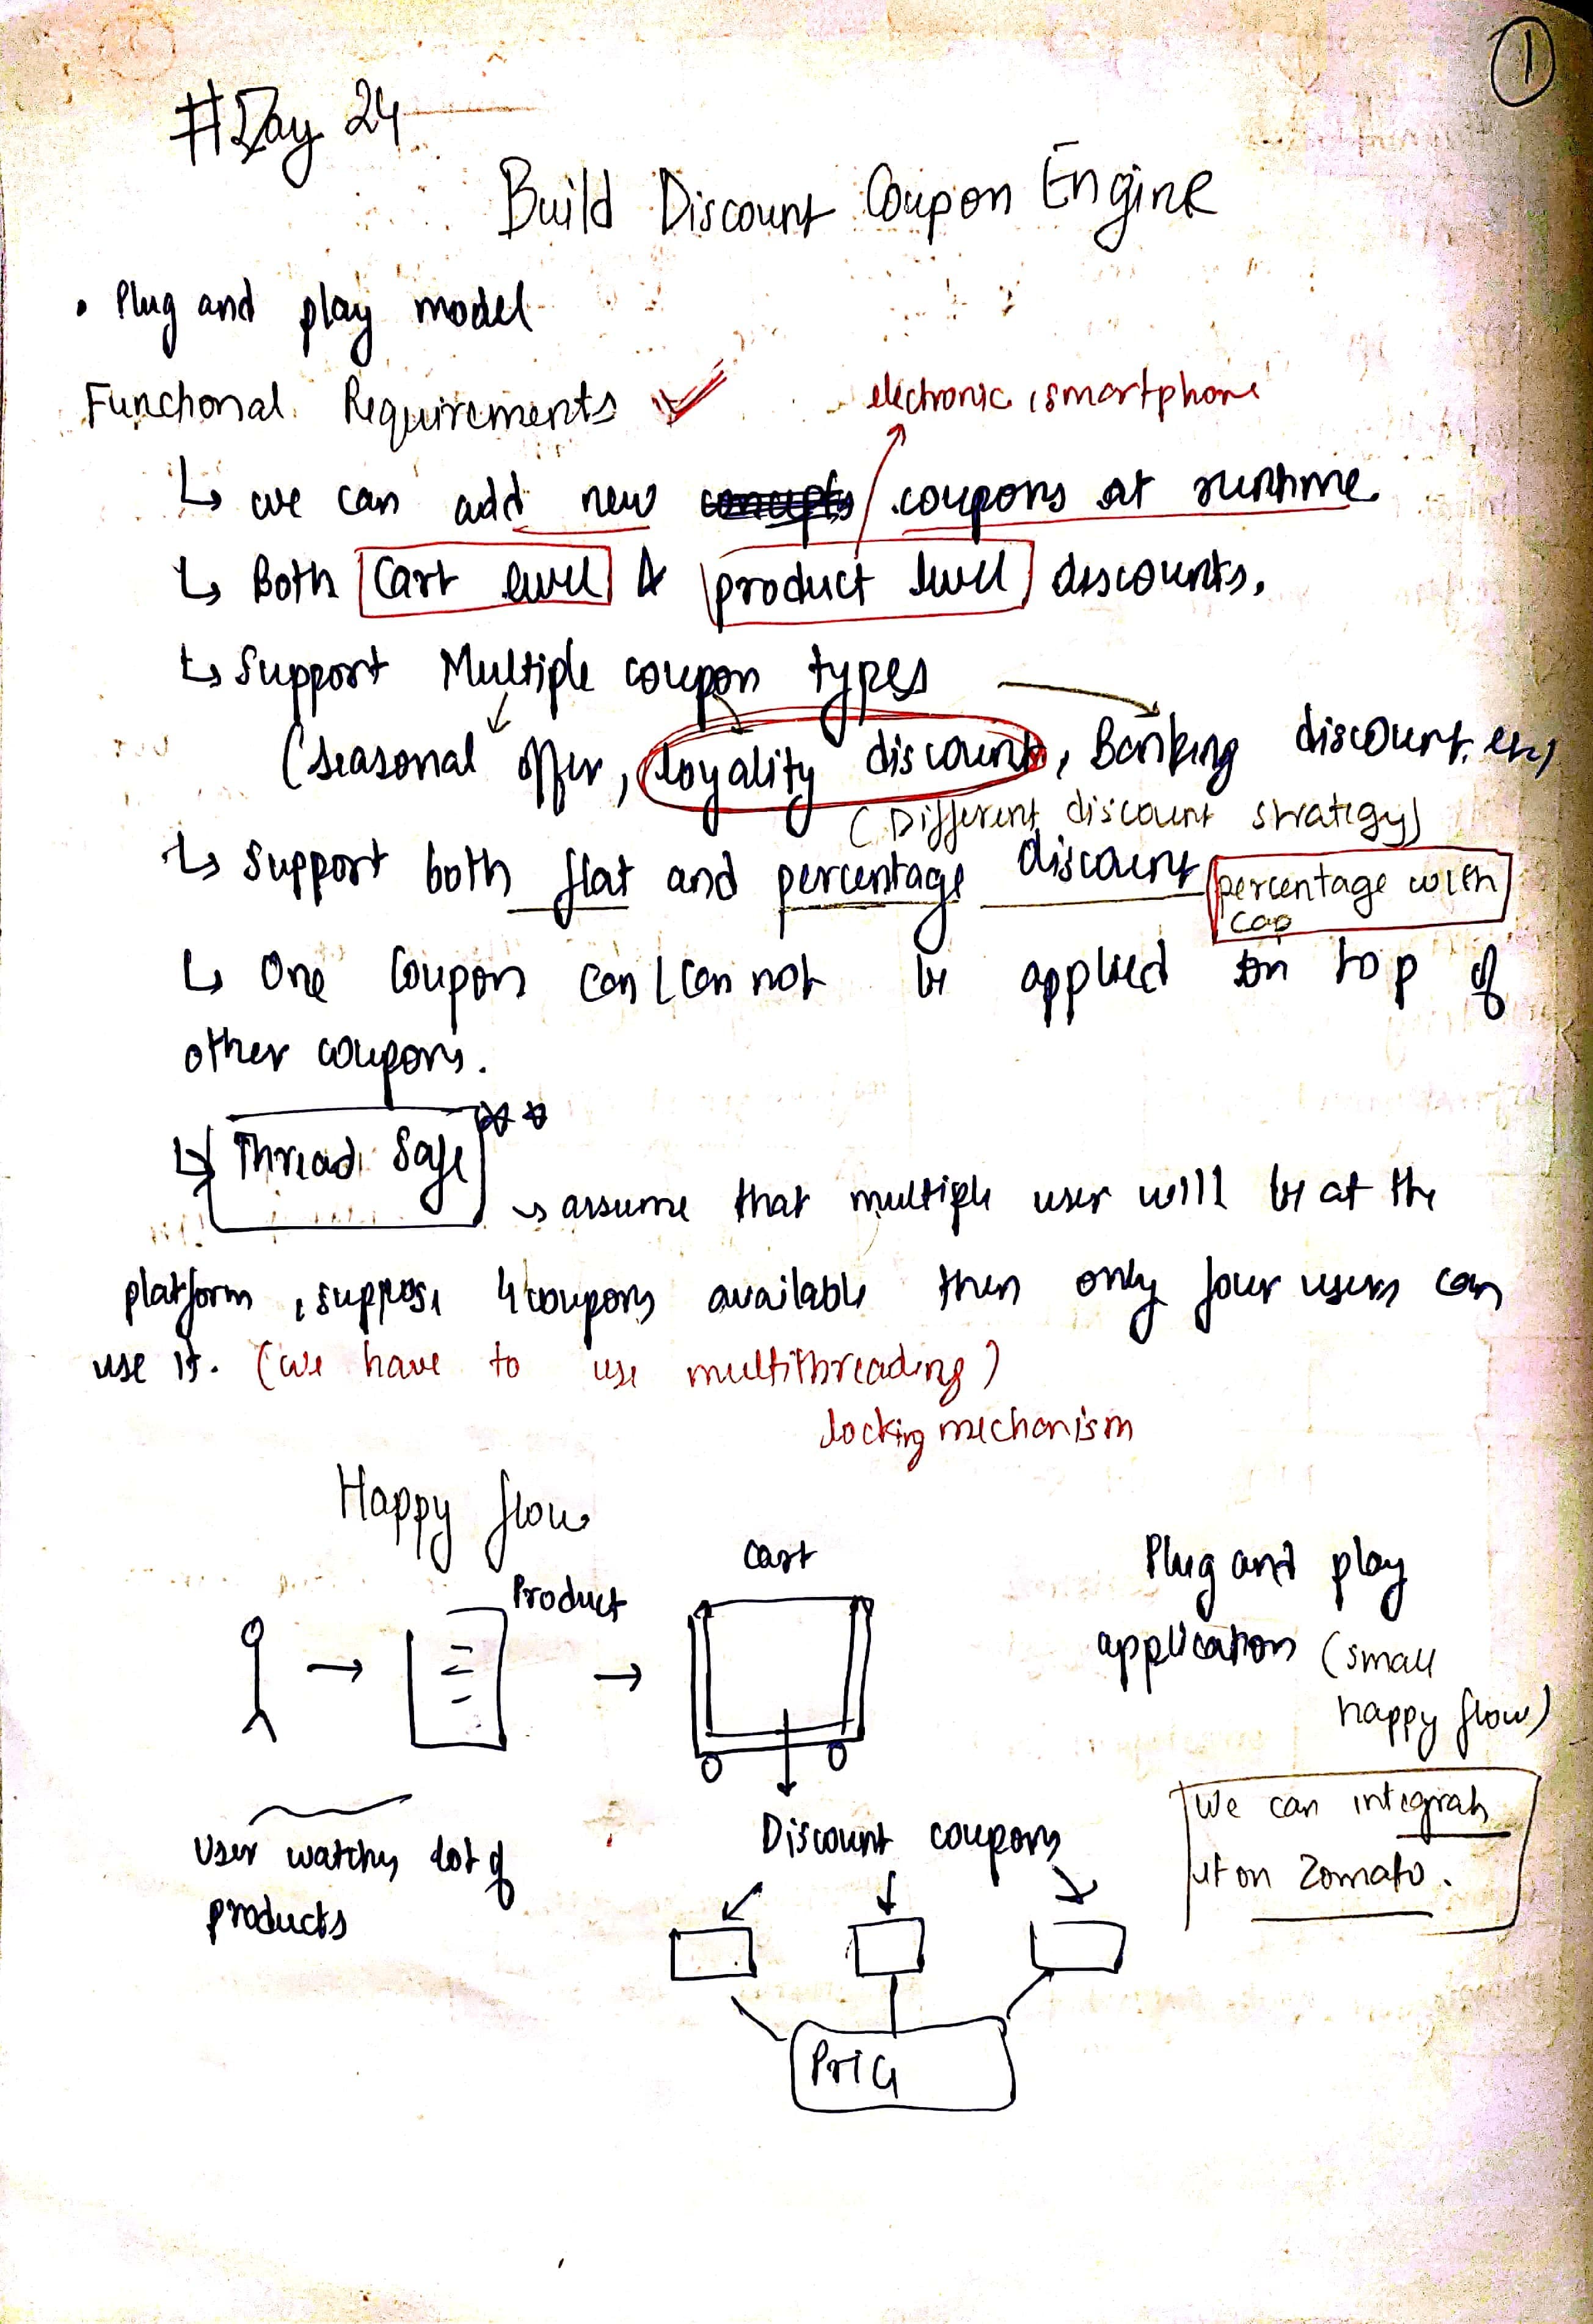 1
#Day 24
Build Discount Coupon Engine
• Plug and play model
Functional Requirements
electronic, smartphone
↳ we can add new coupons at runtime
↳ Both Cart level & product level discounts.
↳ Support Multiple coupon types
(seasonal offer, loyality discount, Banking discount, etc)
(Different discount strategy)
↳ Support both flat and percentage discount percentage with
cap
↳ One Coupon can/can not be applied on top of
other coupons.
↳ Thread Safe
↳ assume that multiple user will be at the
platform, suppose 4 coupons available then only four users can
use it. (we have to use multithreading)
locking mechanism
Happy flow
Product
Cart
Plug and play
application (small
happy flow)
User watchs lot of
products
Discount coupons
We can integrate
it on Zomato.
Price